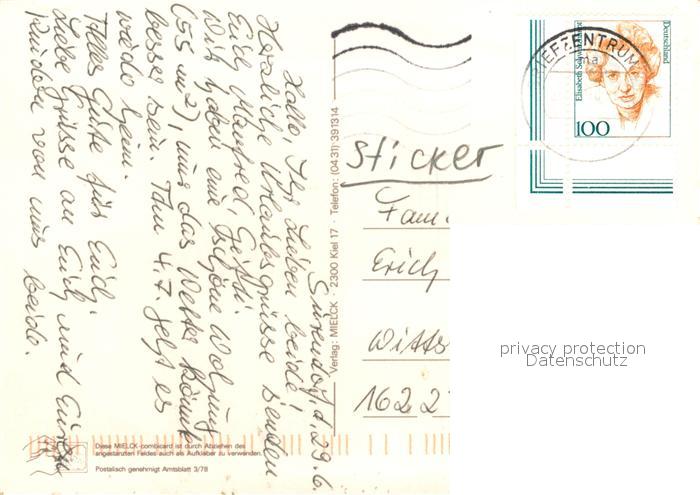 Surendorf, d. 29.6.
Hallo, Ihr Lieben beide!
Herzliche Urlaubsgrüsse senden
Euch Manfred, Gifti.
Wir haben eine schöne Wohnung
(55 m²), nur das Wetter könnte
besser sein. Am 4.7. geht es
wieder heim.
Alles Gute für Euch.
Liebe Grüsse an Euch und Euren
Kindern von uns beide.
Verlag: MIELCK · 2300 Kiel 17 · Telefon: (0431) 391314
Diese MIELCK-combicard ist durch Abziehen des
angestanzten Feldes auch als Aufkleber zu verwenden.
Postalisch genehmigt Amtsblatt 3/78
Sticker
Fam.
Erich
Witts
162 2
BRIEFZENTRUM
ma
Elisabeth
Deutschland
100
privacy protection
Datenschutz